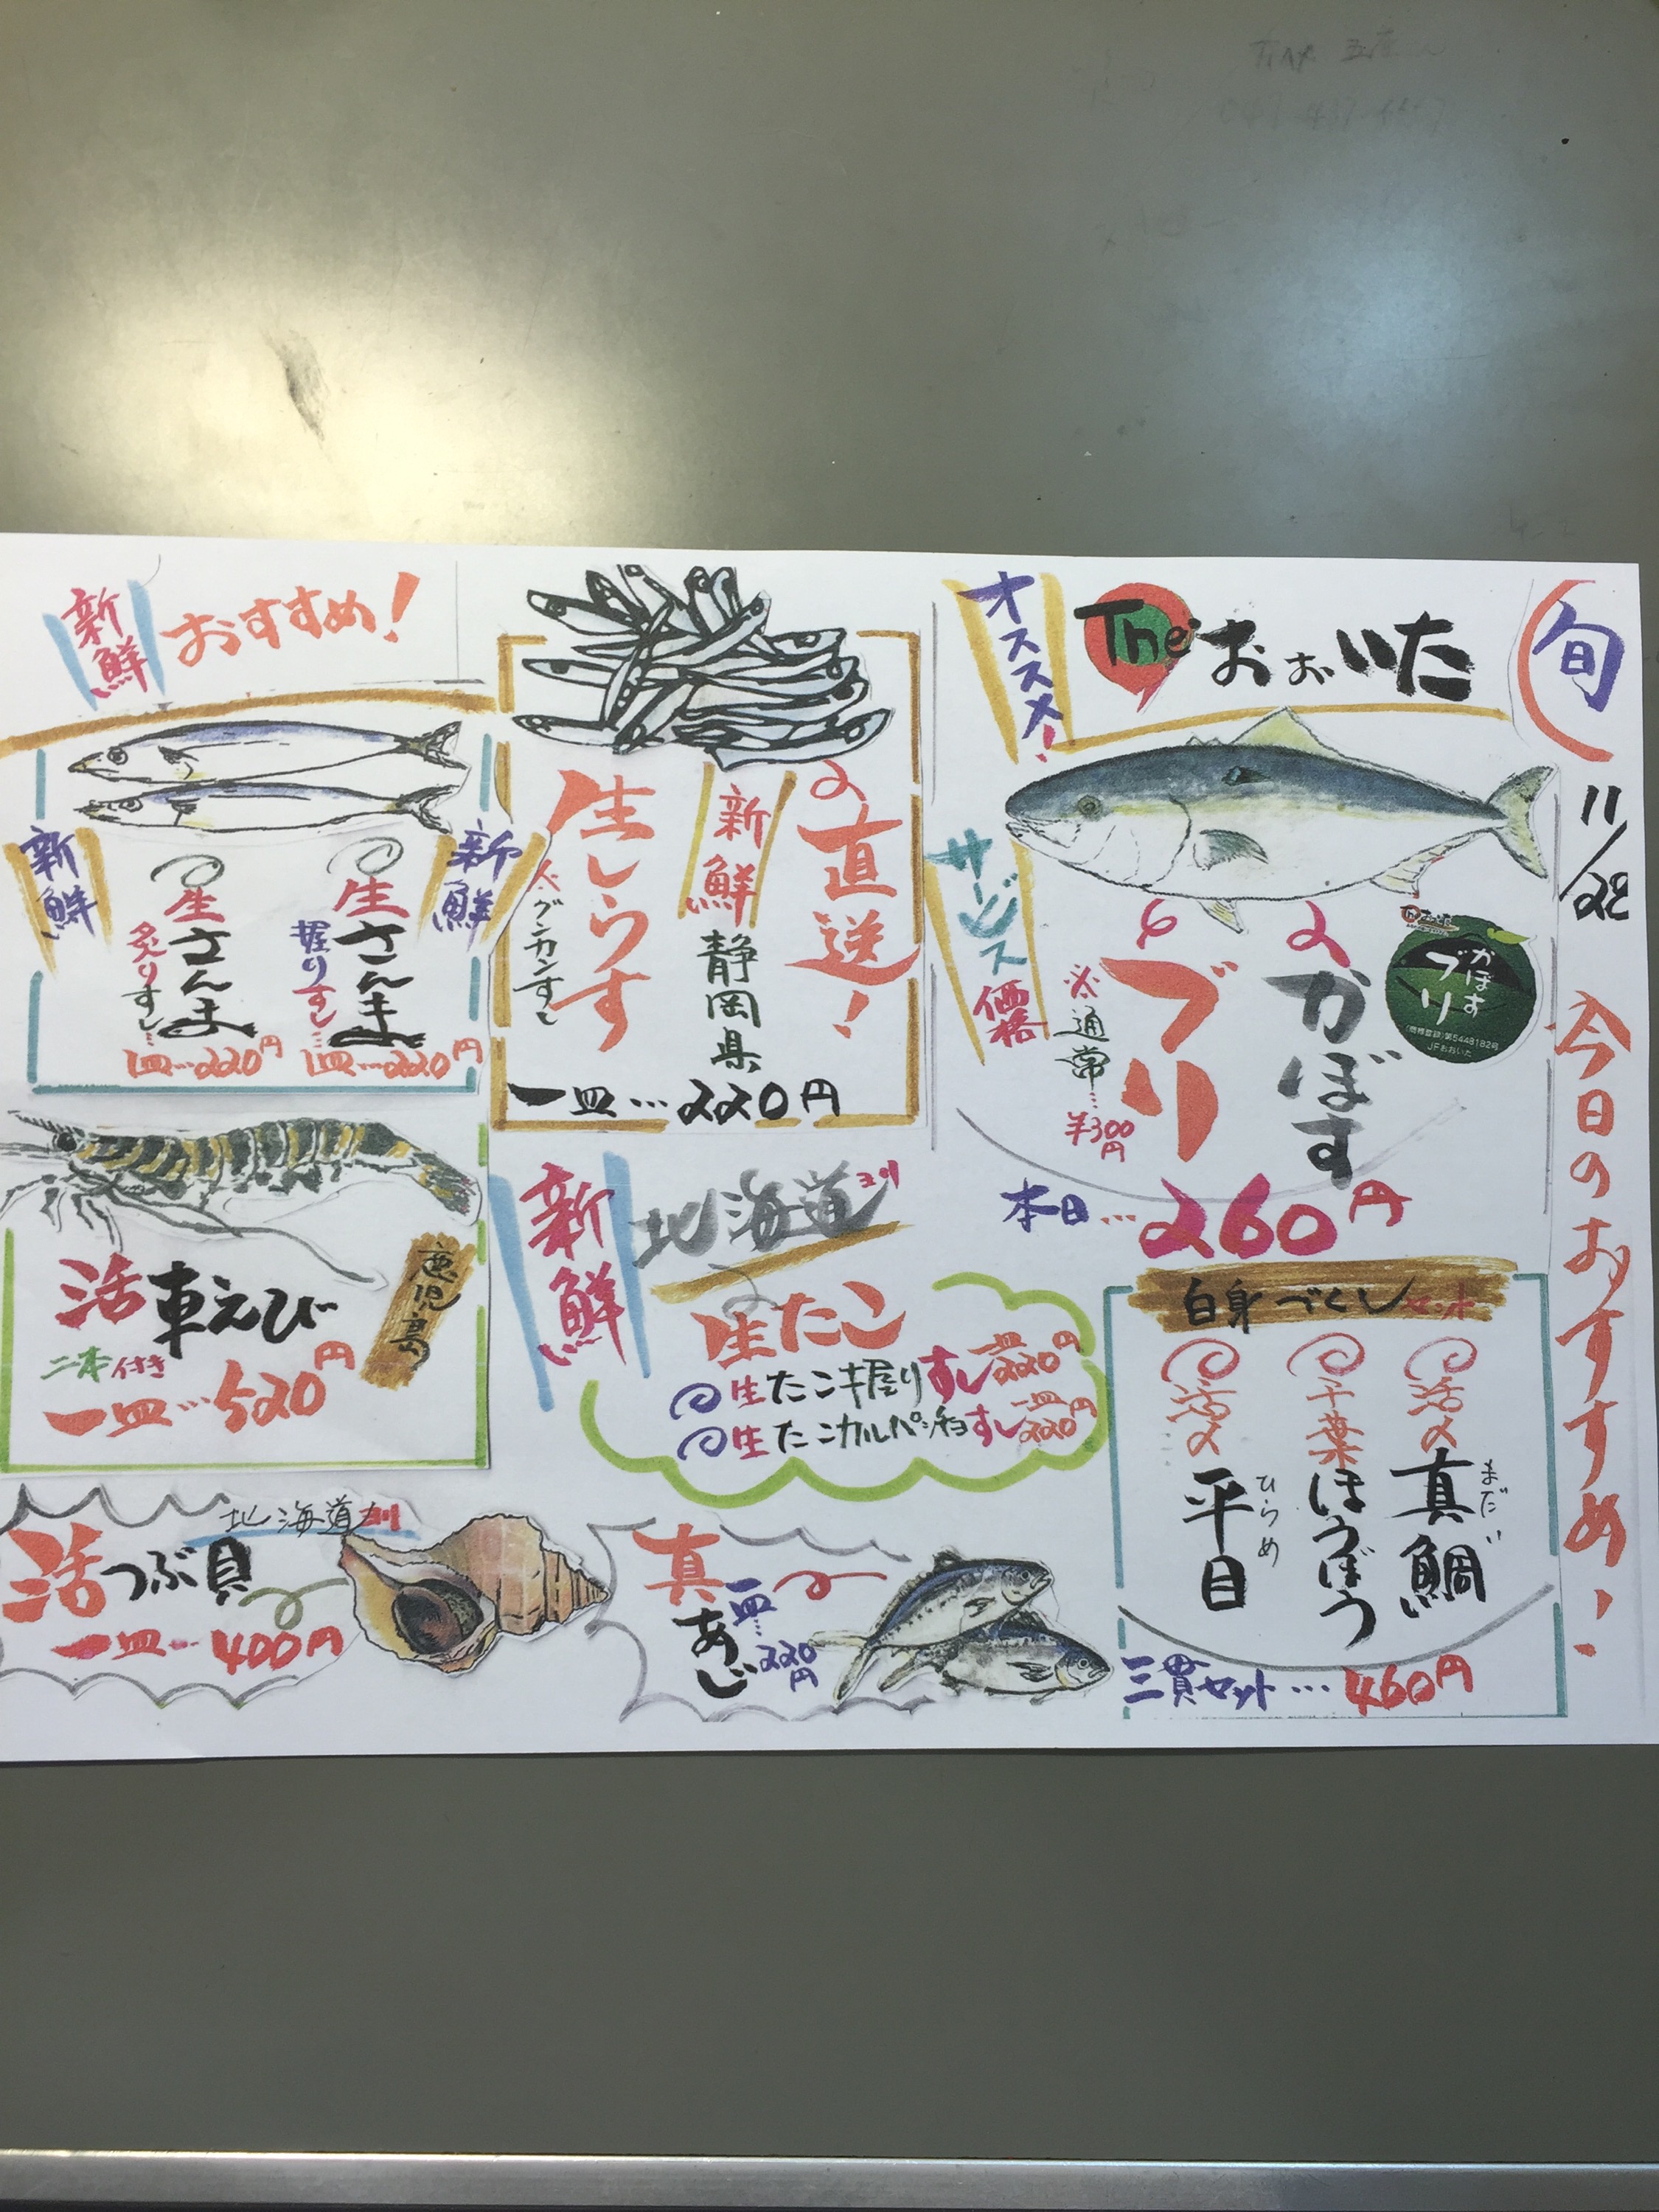 旬
11/22
今日のおすすめ!
オススメ!
The おおいた
サービス価格
かぼす
ブリ
かぼす
ブリ
(商標登録)第5448182号
JFおおいた
※通常…¥300円
本日…260円
直送!
新鮮
静岡県
生しらす
※グンカンすし
一皿…220円
新鮮
おすすめ!
新鮮
生さんま
握りすし…
1皿…220円
生さんま
炙りすし…
1皿…220円
新鮮
白身づくしセット
活〆
真鯛
まだい
千葉
ほうぼう
活〆
平目
ひらめ
三貫セット…460円
新鮮
北海道ヨリ
生たこ
生たこ握りすし一皿220円
生たこカルパッチョすし一皿220円
鹿児島
活車えび
二本付き
一皿…520円
真あじ
一皿…220円
北海道
活つぶ貝
一皿…400円